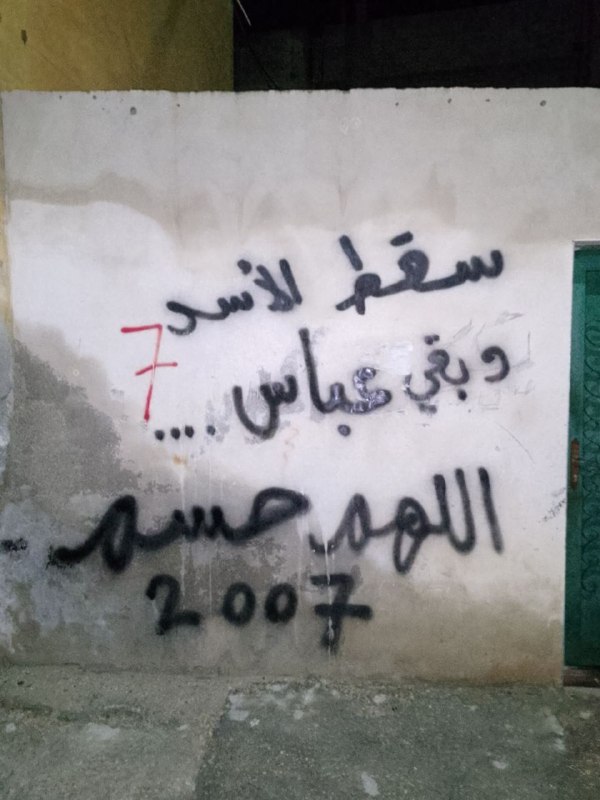 سقط الأسد
وبقي عباس ....
7
اللهم حسم
2007